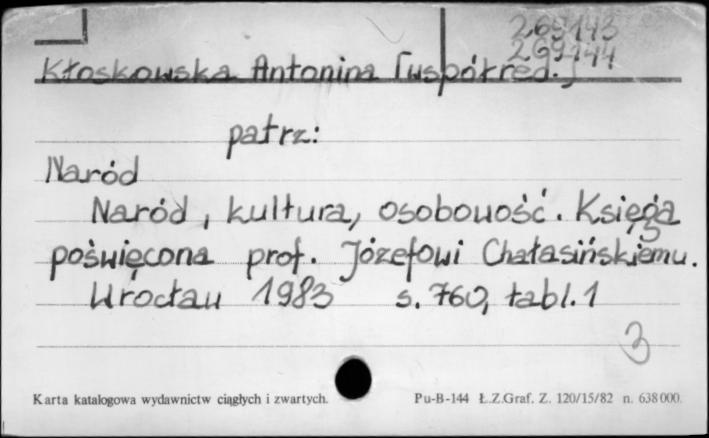 269143
269144
Kłoskowska Antonina [współred.]
patrz:
Naród
Naród, kultura, osobowość. Księga
poświęcona prof. Józefowi Chałasińskiemu.
Wrocław 1983 s. 760, tabl. 1
3
Karta katalogowa wydawnictw ciągłych i zwartych. Pu-B-144 Ł.Z.Graf. Z. 120/15/82 n. 638 000.